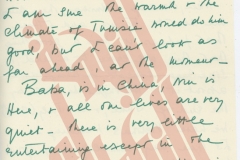 I am sure the warmth & the
climate of Tunisia would do him
good, but I can't look as
far ahead at the moment -
Baba, is in China, is
Here, & all our lives are very
quiet - there is very little
entertaining except in the